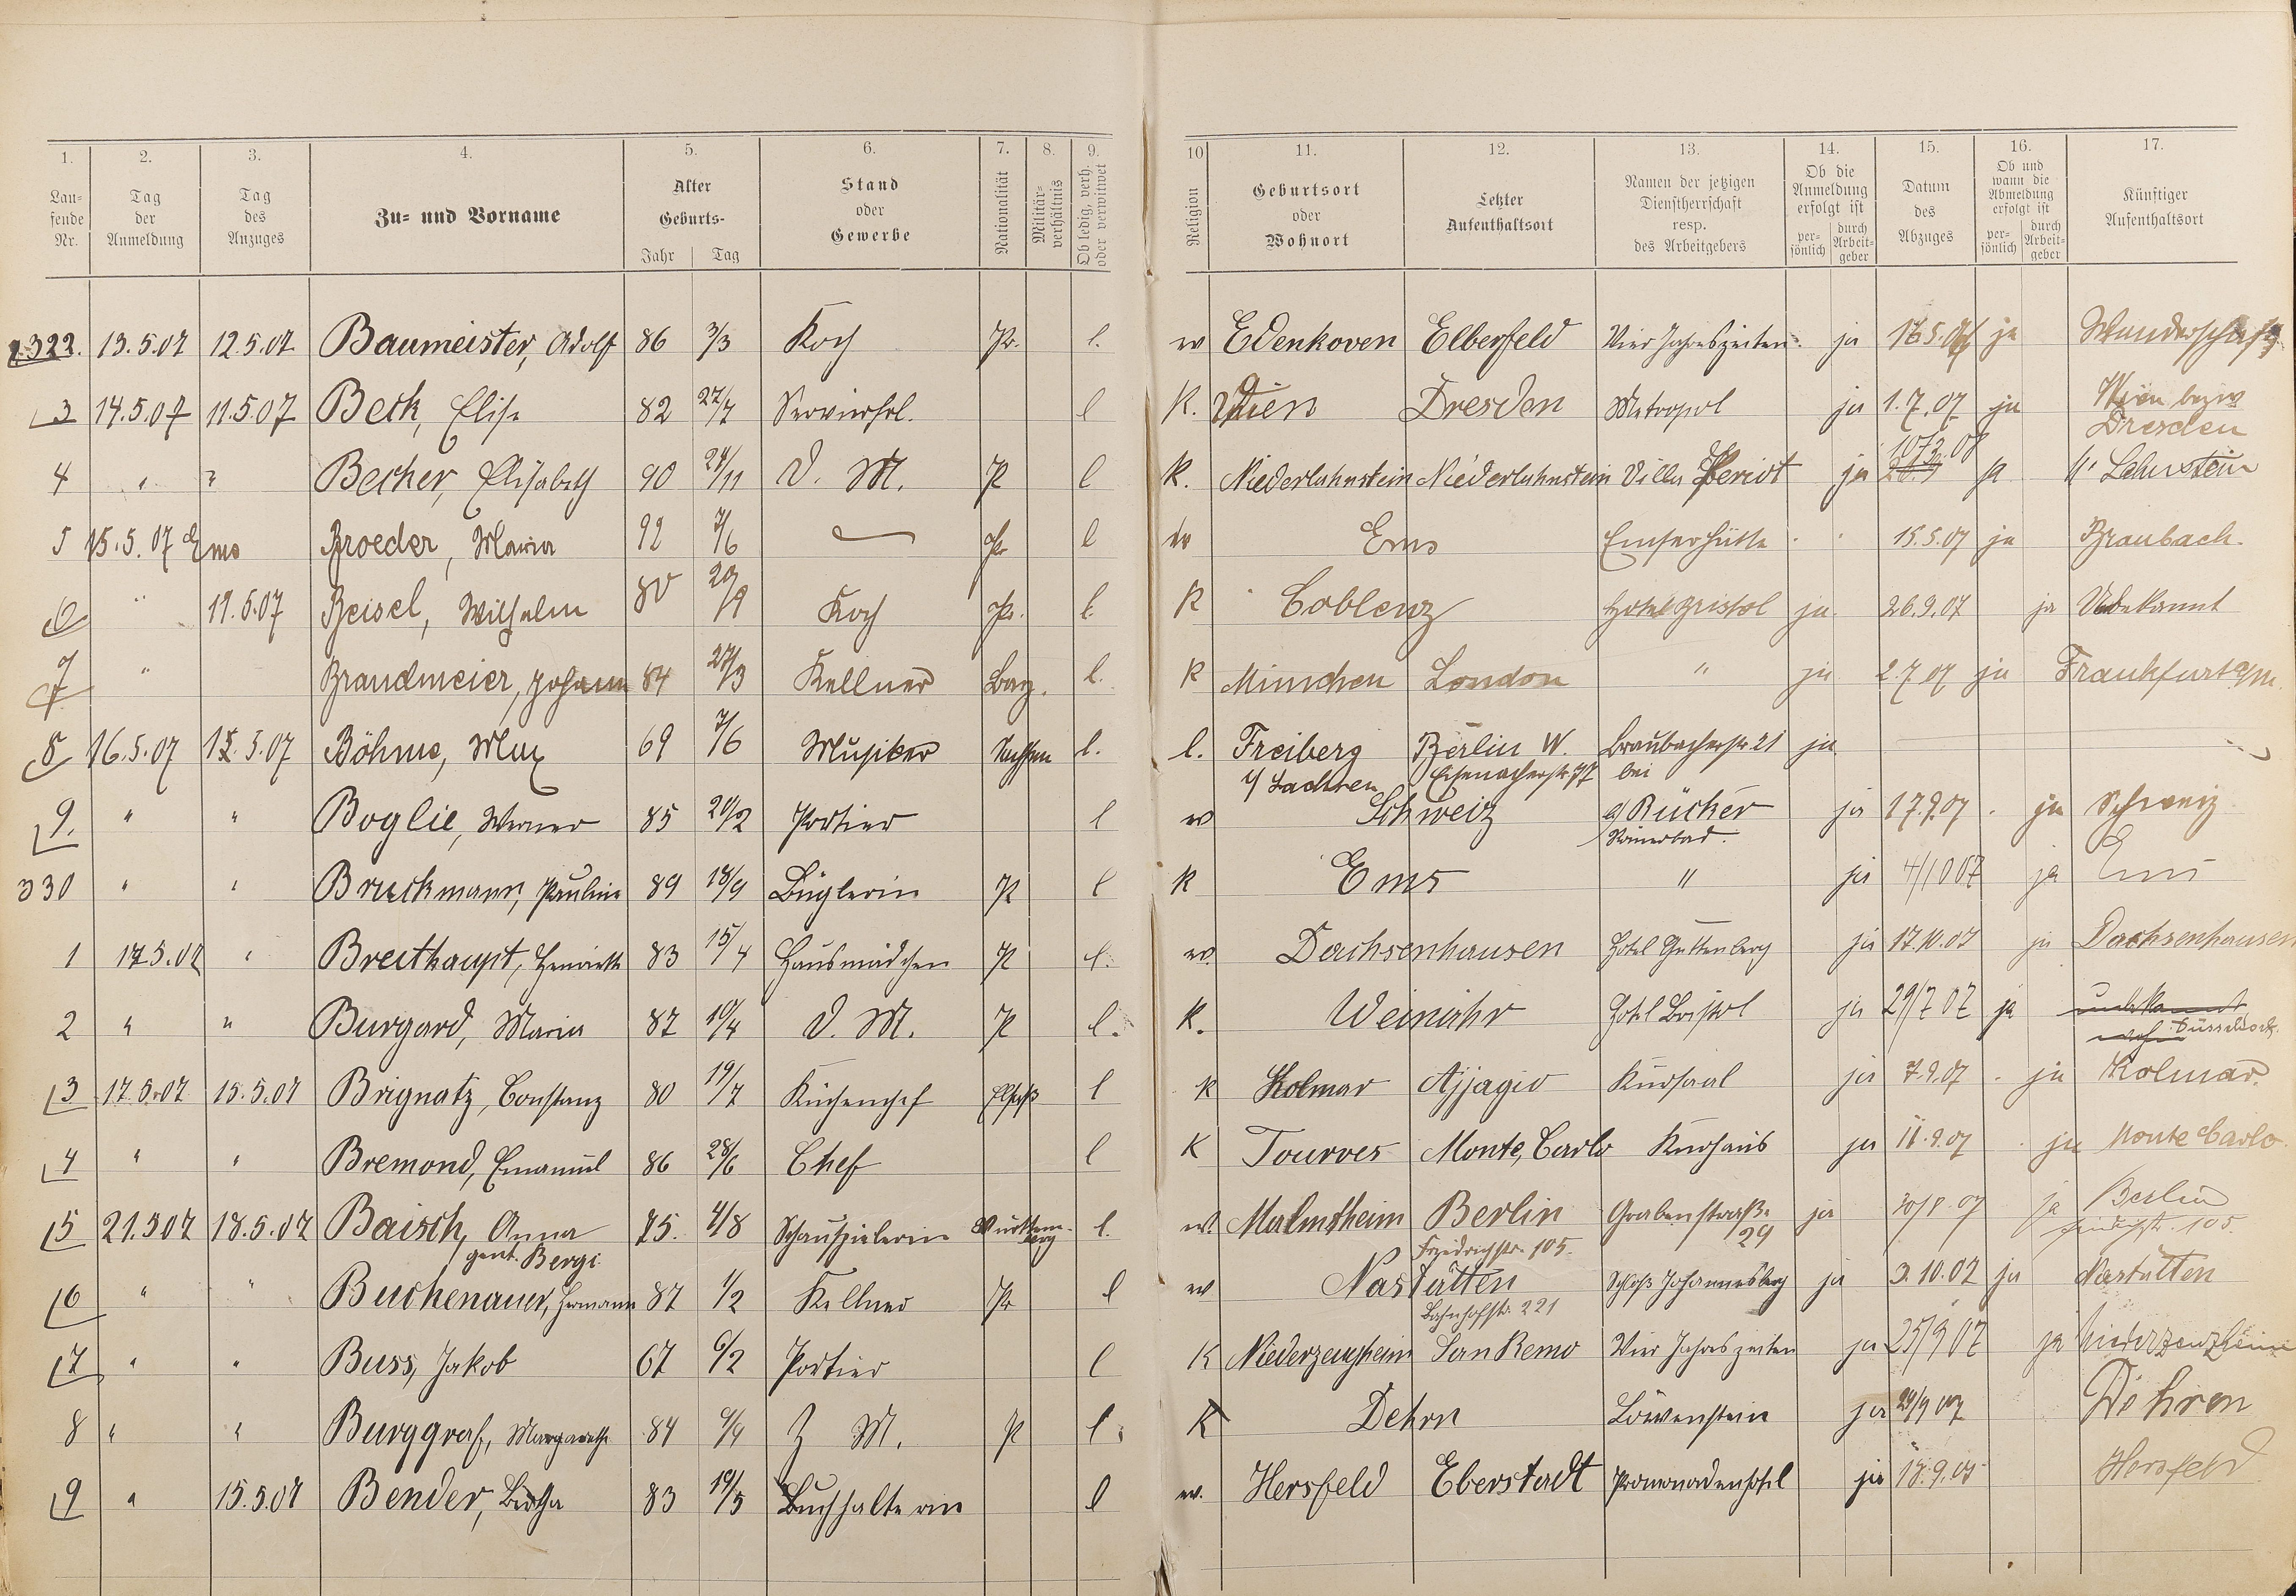 1. 2. 3. 4. 5. 6. 7. 8. 9. 10 11. 12. 13. 14. 15. 16. 17.
Lau-
fende
Nr.
Tag
der
Anmeldung
Tag
des
Anzuges
Zu- und Vorname
Alter
Geburts-
Jahr Tag
Stand
oder
Gewerbe
Nationalität
Militär-
verhältnis
Ob ledig, verh.
oder verwitwet
Religion
Geburtsort
oder
Wohnort
Letzter
Aufenthaltsort
Namen der jetzigen
Dienstherrschaft
resp.
des Arbeitgebers
Ob die
Anmeldung
erfolgt ist
per-
sönlich
durch
Arbeit-
geber
Datum
des
Abzuges
Ob und
wann die
Abmeldung
erfolgt ist
per-
sönlich
durch
Arbeit-
geber
Künftiger
Aufenthaltsort
322. 13.5.07 12.5.07 Baumeister, Adolf 86 3/3 Koch Pr. l. ev Edenkoven Elberfeld Vier Jahreszeiten ja ja Wanderschaft
3 14.5.07 11.5.07 Beck, Elise 82 27/7 Servierfrl. l K. Wien Dresden Metropol ja 1.7.07 ja Wien bezw
Dresden
4 " " Becker, Elisabeth 90 24/11 D. M. P l K. Niederlahnstein Niederlahnstein Villa Beriot ja ja N. Lahnstein
5 15.5.07 Ems Broeder, Maria 92 7/6 — Pr l ev Ems Emserhütte 15.5.07 ja Braubach.
6 " 19.5.07 Beisel, Wilhelm 80 20/9 Koch Pr. l. K Coblenz Hotel Bristol ja 26.9.07 ja Unbekannt
7 " Brandmeier, Johann 84 27/3 Kellner Bay. l. K München London " ja 2.7 07 ja Frankfurt a/M.
8 16.5.07 .5.07 Böhme, Max 69 7/6 Musiker Sachsen l. l. Freiberg Berlin W. Braubacherstr. 21 ja
i/ Sachsen Eisenacherstr. 77 bei
9. " " Boglie, Werner 85 20/2 Portier l ev Schweiz g Rücker ja 17.9.07 ja Schweiz
Römerbad.
330 " " Bruckmann, Pauline 89 18/9 Büglerin P l K Ems " ja 4/10 07 ja Ems
1 17.5.07 " Breithaupt, Henriette 83 15/4 Hausmädchen P l. ev. Dachsenhausen Hotel Guttenberg ja 17.10.07 ja Dachsenhausen
2 " " Burgard, Maria 87 10/4 D. M. P l. K. Weinähr Hotel Bristol ja 29/7 07 ja unbekannt
Düsseldorf
3 17.5.07 15.5.07 Brignatz, Constanz 80 19/7 Küchenchef Elsaß l K Kolmar Ajjagio Kursaal ja 7.9.07 ja Kolmar.
4 " " Bremond, Emanuel 86 28/6 Chef l K Tourves Monte, Carlo Kurhaus ja 11.9.07 ja Monte Carlo.
5 21.5.07 18.5.07 Baisch, Anna 75. 4/8 Schauspielerin Württem-
berg l. ev. Malmsheim Berlin Grabenstraße ja 30/8.07 ja Berlin
gent. Bergi Friedrichstr. 105. 29 Friedrichstr. 105.
6 " " Buchenauer, Hermann 87 1/2 Kellner Pr l ev Nastätten Schloß Johannesberg ja 3.10.07 ja Nastätten
Bahnhofstr. 221
7 " " Buss, Jakob 67 6/2 Portier l K Niederzeuzheim San Remo Vier Jahreszeiten ja 25/9 07 ja Niederzeuzheim
8 " " Burggraf, Margarethe 84 9/9 Z M. P l. K Dehrn Löwenstein ja 29/9 07 Dehren
9 " 15.5.07 Bender, Bertha 83 19/5 Buchhalterin l ev. Hersfeld Eberstadt Promenadenhotel ja 18.9.07 Hersfeld